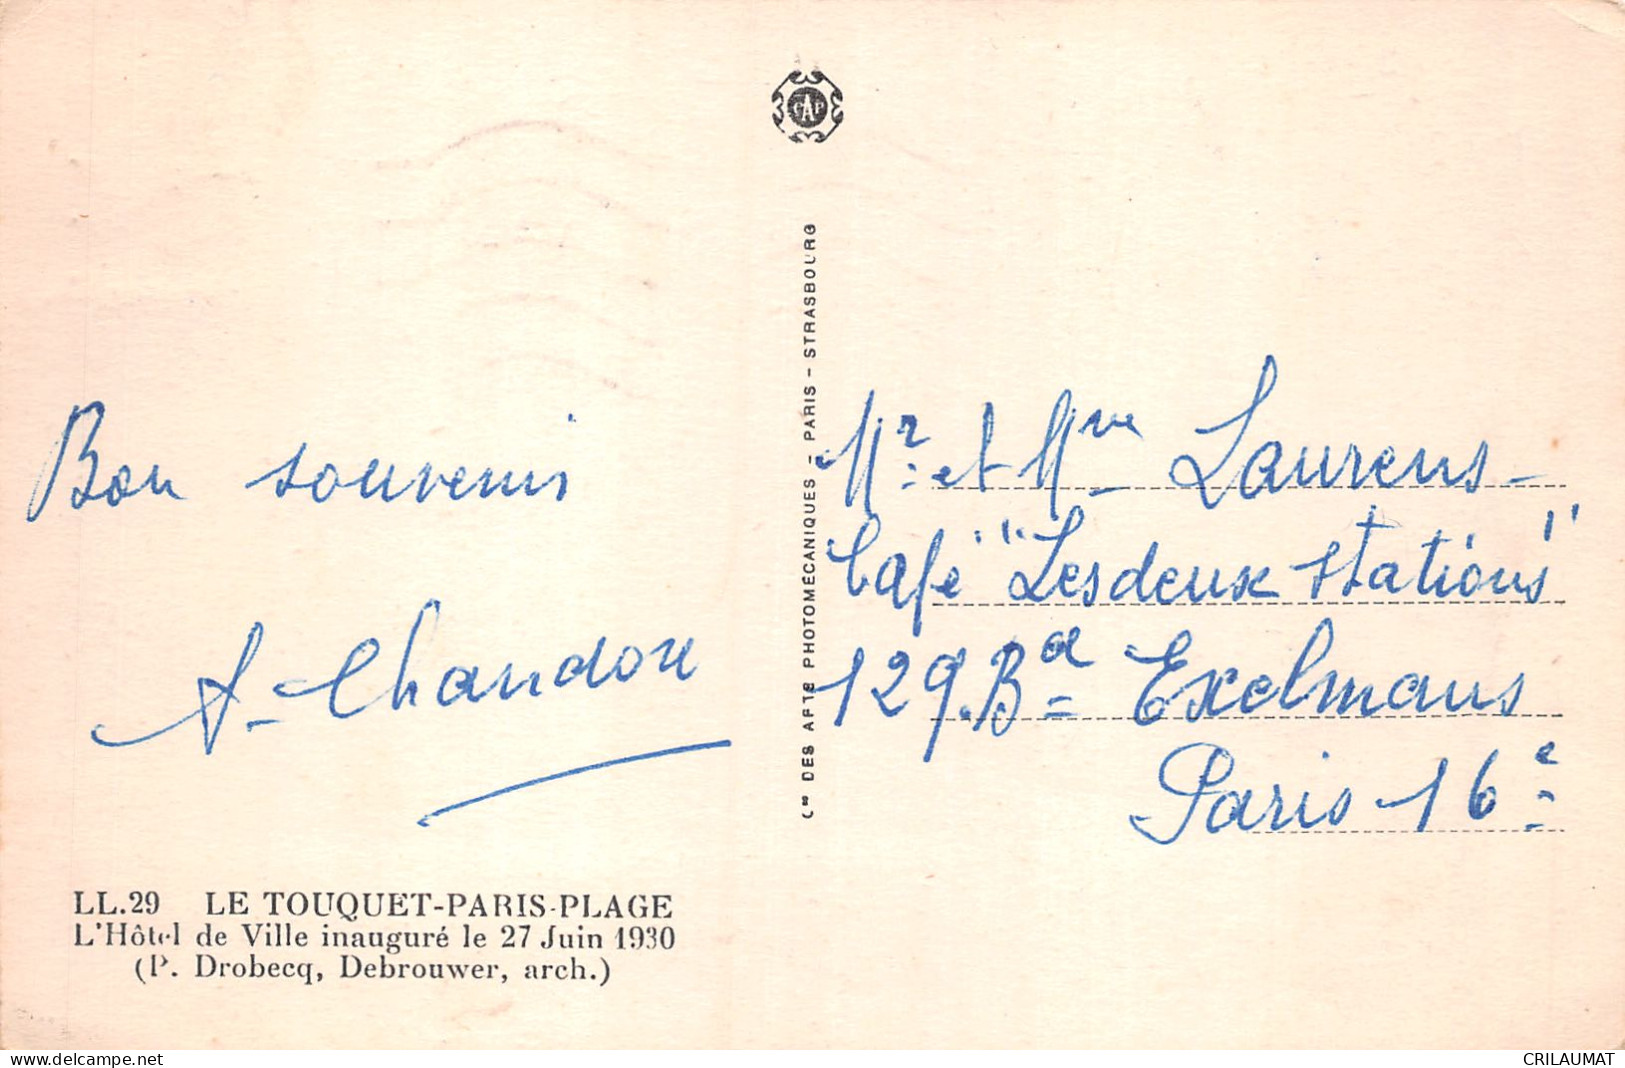 CAP
Bon souvenir
A. Chandore
LL.29 LE TOUQUET-PARIS-PLAGE
L'Hôtel de Ville inauguré le 27 Juin 1930
(P. Drobecq, Debrouwer, arch.)
Cie DES ARTS PHOTOMÉCANIQUES - PARIS - STRASBOURG
Mr. et Mme Laurens -
Café "Les deux stations"
129. Bd Exelmans
Paris 16e
www.delcampe.net
CRILAUMAT